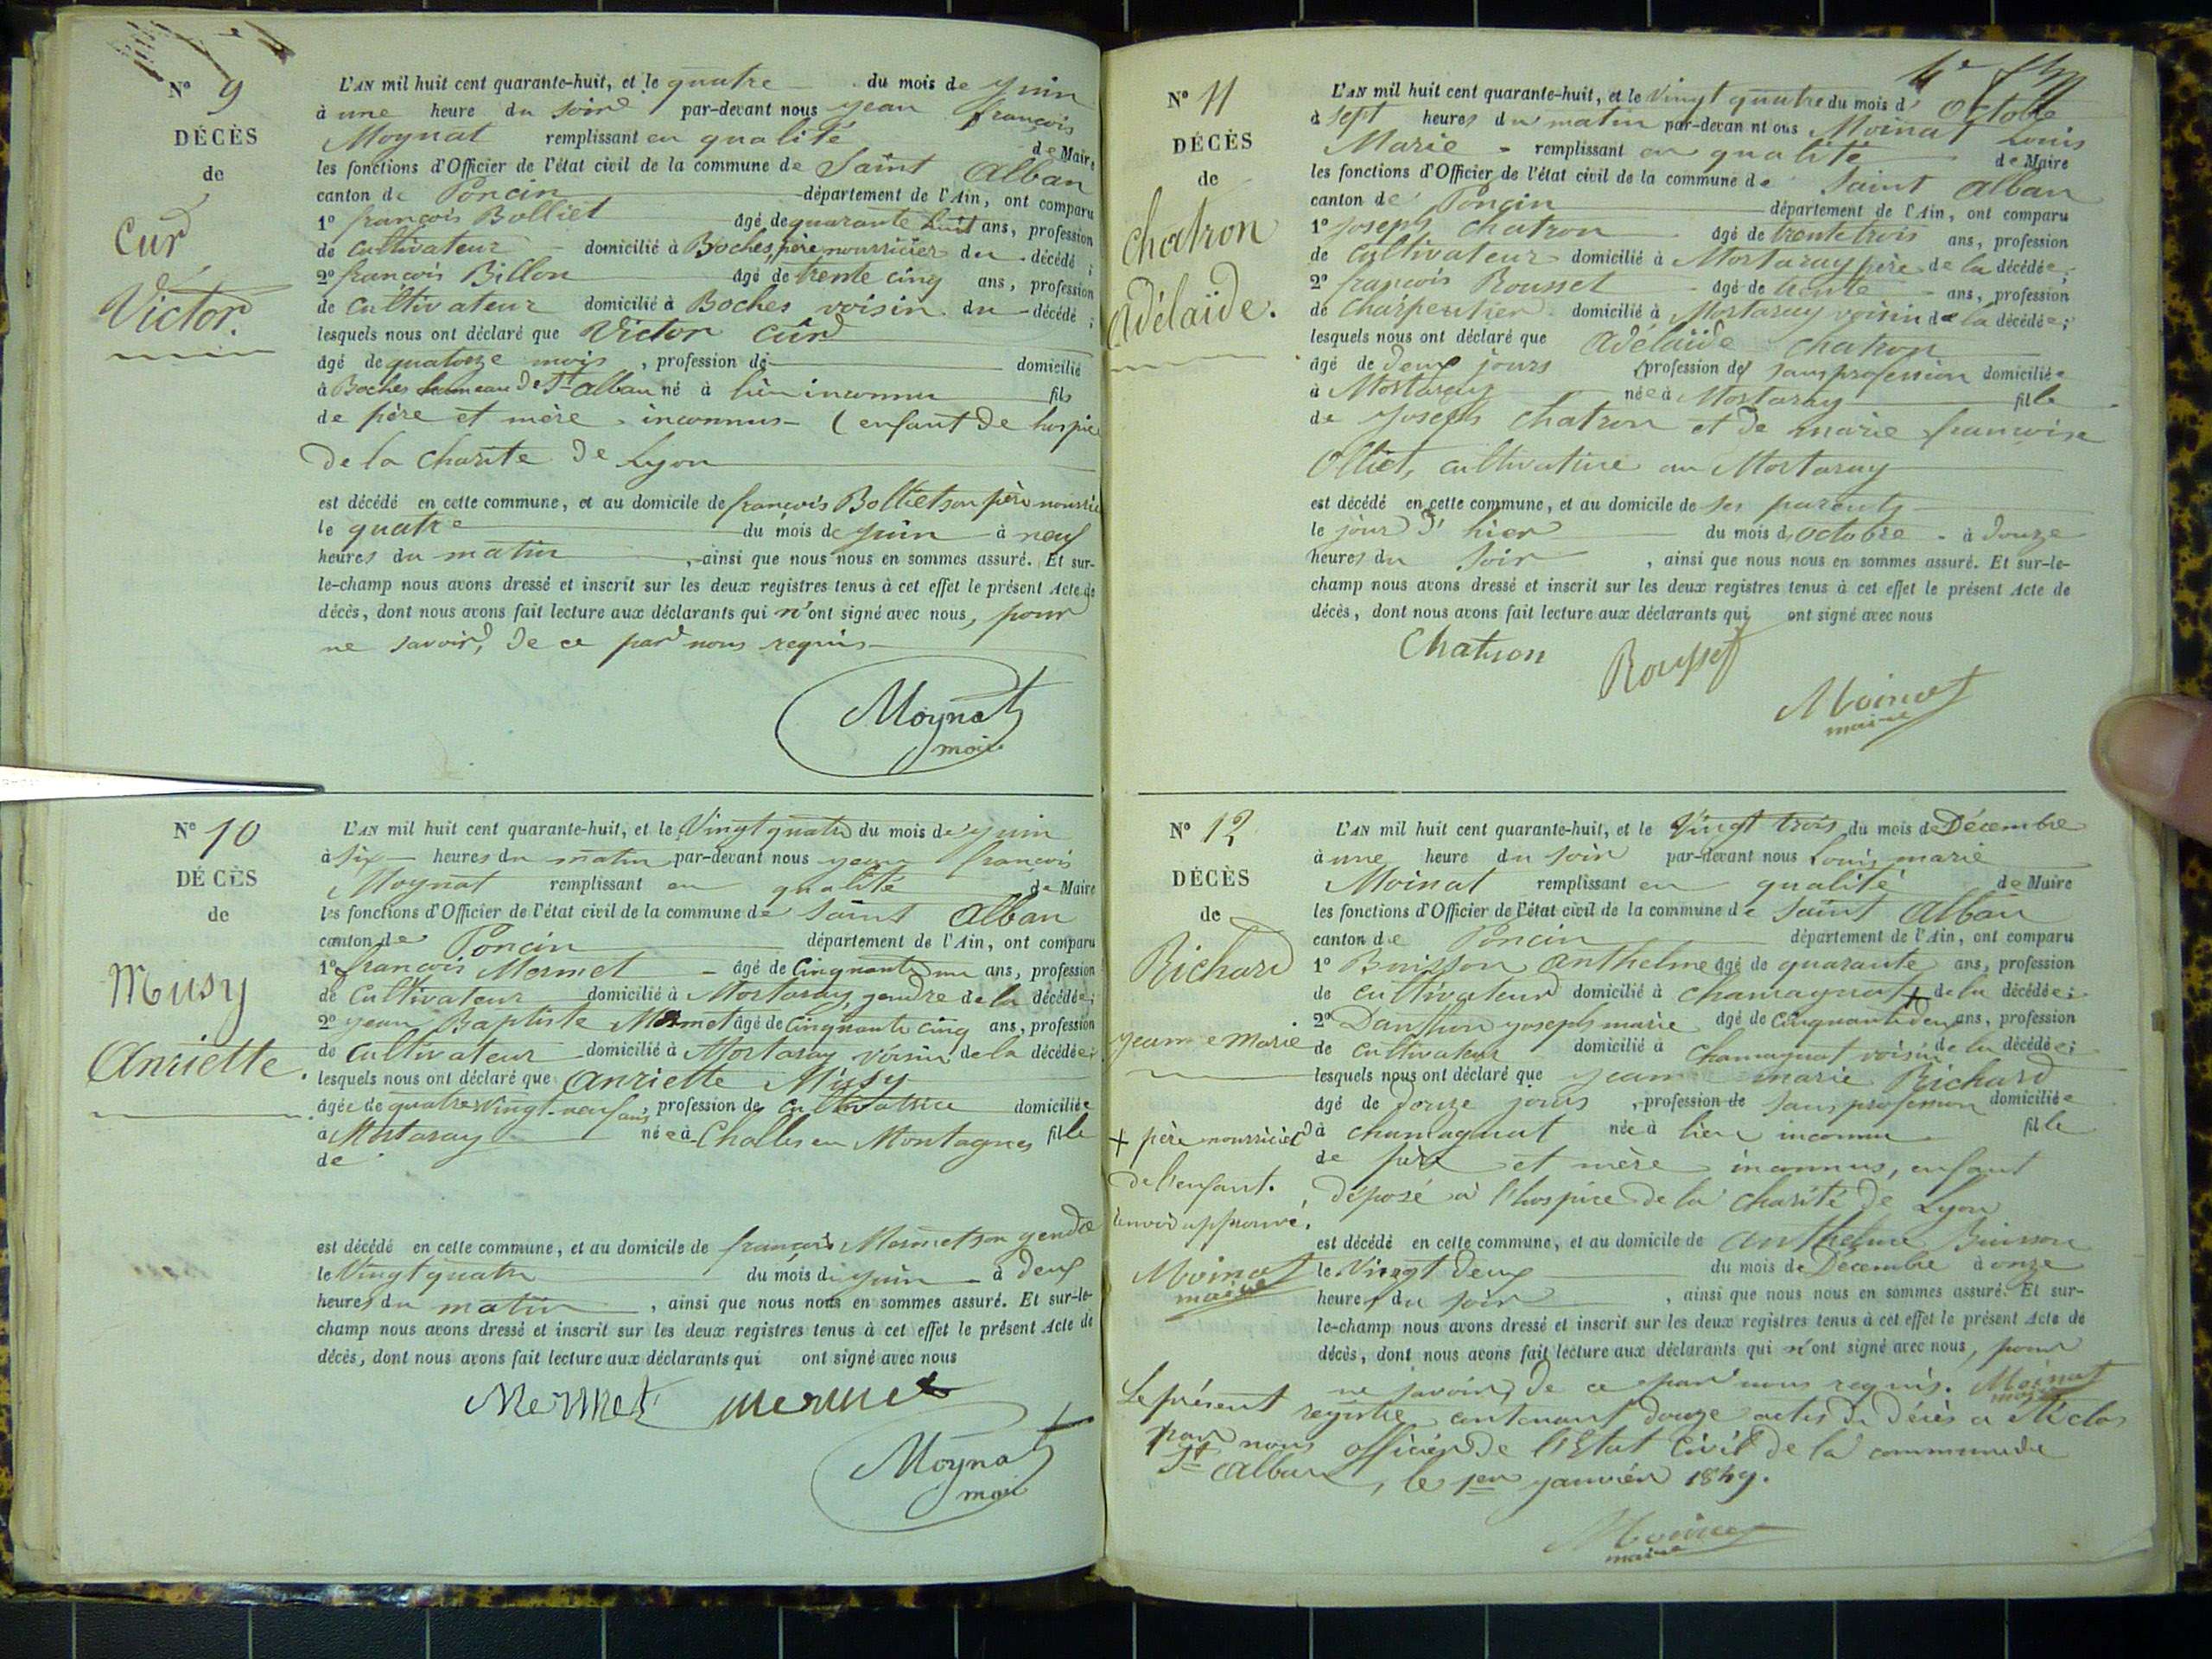 N° 9
DÉCÈS
de
Curd
Victor.
L'AN mil huit cent quarante-huit, et le quatre du mois de juin
à une heure du soir par-devant nous jean françois
Moynat remplissant en qualité de Maire
les fonctions d'Officier de l'état civil de la commune de Saint Alban
canton de Poncin département de l'Ain, ont comparu
1° françois Bolliet âgé de quarante huit ans, profession
de cultivateur domicilié à Boches, père nourricier du décédé ;
2° françois Billon âgé de trente cinq ans, profession
de cultivateur domicilié à Boches voisin du décédé ;
lesquels nous ont déclaré que Victor Curd
âgé de quatorze mois, profession de domicilié
à Boches hameau de St alban né à lieu inconnu fils
de père et mère inconnus (enfant de hospice
de la Charité de Lyon
est décédé en cette commune, et au domicile de françois Bolliet son père nourricier
le quatre du mois de juin à neuf
heures du matin, ainsi que nous nous en sommes assuré. Et sur-
le-champ nous avons dressé et inscrit sur les deux registres tenus à cet effet le présent Acte de
décès, dont nous avons fait lecture aux déclarants qui n'ont signé avec nous, pour
ne savoir, de ce par nous requis
Moynat
maire
N° 10
DÉCÈS
de
Musy
Anriette.
L'AN mil huit cent quarante-huit, et le Vingt quatre du mois de juin
à six heures du matin par-devant nous jean françois
Moynat remplissant en qualité de Maire
les fonctions d'Officier de l'état civil de la commune de Saint Alban
canton de Poncin département de l'Ain, ont comparu
1° françois Mermet âgé de cinquante un ans, profession
de cultivateur domicilié à Mortaray, gendre de la décédée ;
2° jean Baptiste Mermet âgé de cinquante cinq ans, profession
de cultivateur domicilié à Mortaray voisin de la décédée ;
lesquels nous ont déclaré que Anriette Musy
âgée de quatrevingt-neuf ans, profession de cultivatrice domiciliée
à Mortaray née à Challes en Montagnes fille
de
est décédé en cette commune, et au domicile de françois Mermet son gendre
le Vingt quatre du mois de juin à deux
heures du matin, ainsi que nous nous en sommes assuré. Et sur-le-
champ nous avons dressé et inscrit sur les deux registres tenus à cet effet le présent Acte de
décès, dont nous avons fait lecture aux déclarants qui ont signé avec nous
Mermet mermet
Moynat
maire
N° 11
DÉCÈS
de
Chatron
Adélaïde.
L'AN mil huit cent quarante-huit, et le Vingt quatre du mois d'Octobre
à sept heures du matin par-devan nt ous Moinat Louis
Marie remplissant en qualité de Maire
les fonctions d'Officier de l'état civil de la commune de Saint Alban
canton de Poncin département de l'Ain, ont comparu
1° joseph Chatron âgé de trente trois ans, profession
de cultivateur domicilié à Mortaray père de la décédée ;
2° françois Rousset âgé de trente ans, profession
de charpentier domicilié à Mortaray voisin de la décédée ;
lesquels nous ont déclaré que Adélaïde Chatron
âgé de deux jours (profession de) sans profession domiciliée
à Mortaray née à Mortaray fille
de joseph Chatron et de marie francoise
Olliet, cultivatrice au Mortaray
est décédé en cette commune, et au domicile de ses parents
le jour d'hier du mois d'octobre à douze
heures du soir, ainsi que nous nous en sommes assuré. Et sur-le-
champ nous avons dressé et inscrit sur les deux registres tenus à cet effet le présent Acte de
décès, dont nous avons fait lecture aux déclarants qui ont signé avec nous
Chatron Rousset
Moinat
maire
N° 12
DÉCÈS
de
Richard
jeanne Marie
+ père nourricier
de l'enfant.
renvoi approuvé.
Moinat
maire
L'AN mil huit cent quarante-huit, et le Vingt trois du mois de Décembre
à une heure du soir par-devant nous Louis marie
Moinat remplissant en qualité de Maire
les fonctions d'Officier de l'état civil de la commune de Saint Alban
canton de Poncin département de l'Ain, ont comparu
1° Buisson Anthelme âgé de quarante ans, profession
de cultivateur domicilié à chamagnat + de la décédée ;
2° Danthon joseph marie âgé de cinquante deux ans, profession
de cultivateur domicilié à Chamagnat voisin de la décédée ;
lesquels nous ont déclaré que jeanne marie Richard
âgé de douze jours, profession de sans profession domiciliée
à chamagnat née à lieu inconnu fille
de père et mère inconnus, enfant
déposé à l'hospice de la charité de Lyon
est décédé en cette commune, et au domicile de Anthelme Buisson
le Vingt deux du mois de Décembre à onze
heures du soir, ainsi que nous nous en sommes assuré. Et sur-
le-champ nous avons dressé et inscrit sur les deux registres tenus à cet effet le présent Acte de
décès, dont nous avons fait lecture aux déclarants qui n'ont signé avec nous, pour
ne savoir, de ce par nous requis. Moinat
maire
Le présent registre contenant douze actes de décès a été clos
par nous officier de l'Etat Civil de la commune de
St Alban, le 1er janvier 1849.
Moinat
maire